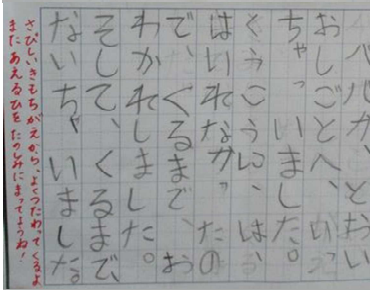 パパが、とおい
おしごとへ、いっ
ちゃっいました。
くうこうに、は、
はいれなかっ、たの
で、くるまで、お
わかれしました。
そして、くるまで、
ないちゃいましたな
さびしいきもちがえから、よくつたわってくるよ
またあえるひをたのしみにまってようね！